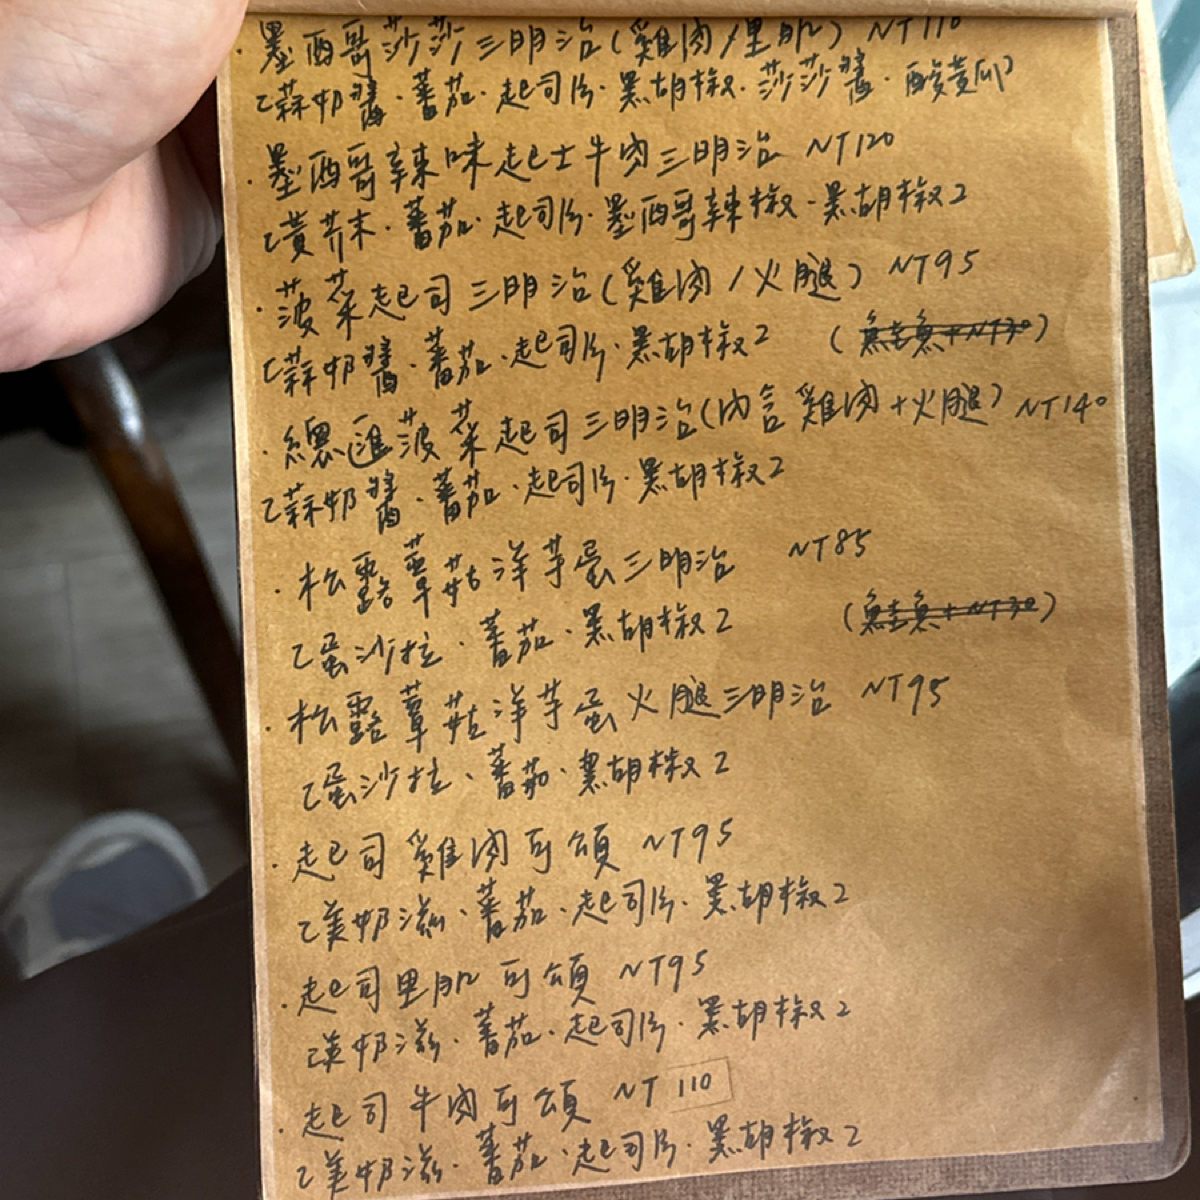 ·墨西哥莎莎三明治(雞肉/里肌) NT110
[蒜奶醬·蕃茄·起司片·黑胡椒·莎莎醬·酸黃瓜]
·墨西哥辣味起士牛肉三明治 NT120
[黃芥末·蕃茄·起司片·墨西哥辣椒·黑胡椒]
·菠菜起司三明治(雞肉/火腿) NT95
[蒜奶醬·蕃茄·起司片·黑胡椒] (鮭魚+NT30)
·總匯菠菜起司三明治(內含雞肉+火腿) NT140
[蒜奶醬·蕃茄·起司片·黑胡椒]
·松露蕈菇洋芋蛋三明治 NT85
[蛋沙拉·蕃茄·黑胡椒] (鮭魚+NT30)
·松露蕈菇洋芋蛋火腿三明治 NT95
[蛋沙拉·蕃茄·黑胡椒]
·起司雞肉可頌 NT95
[美奶滋·蕃茄·起司片·黑胡椒]
·起司里肌可頌 NT95
[美奶滋·蕃茄·起司片·黑胡椒]
·起司牛肉可頌 NT110
[美奶滋·蕃茄·起司片·黑胡椒]